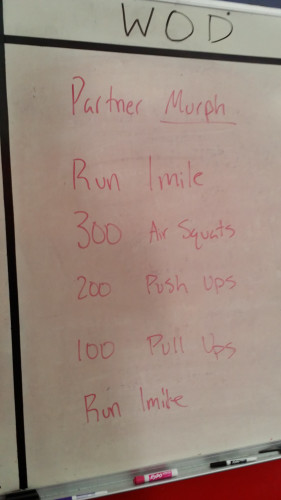 WOD
Partner Murph
Run 1 mile
300 Air Squats
200 Push Ups
100 Pull Ups
Run 1 mile